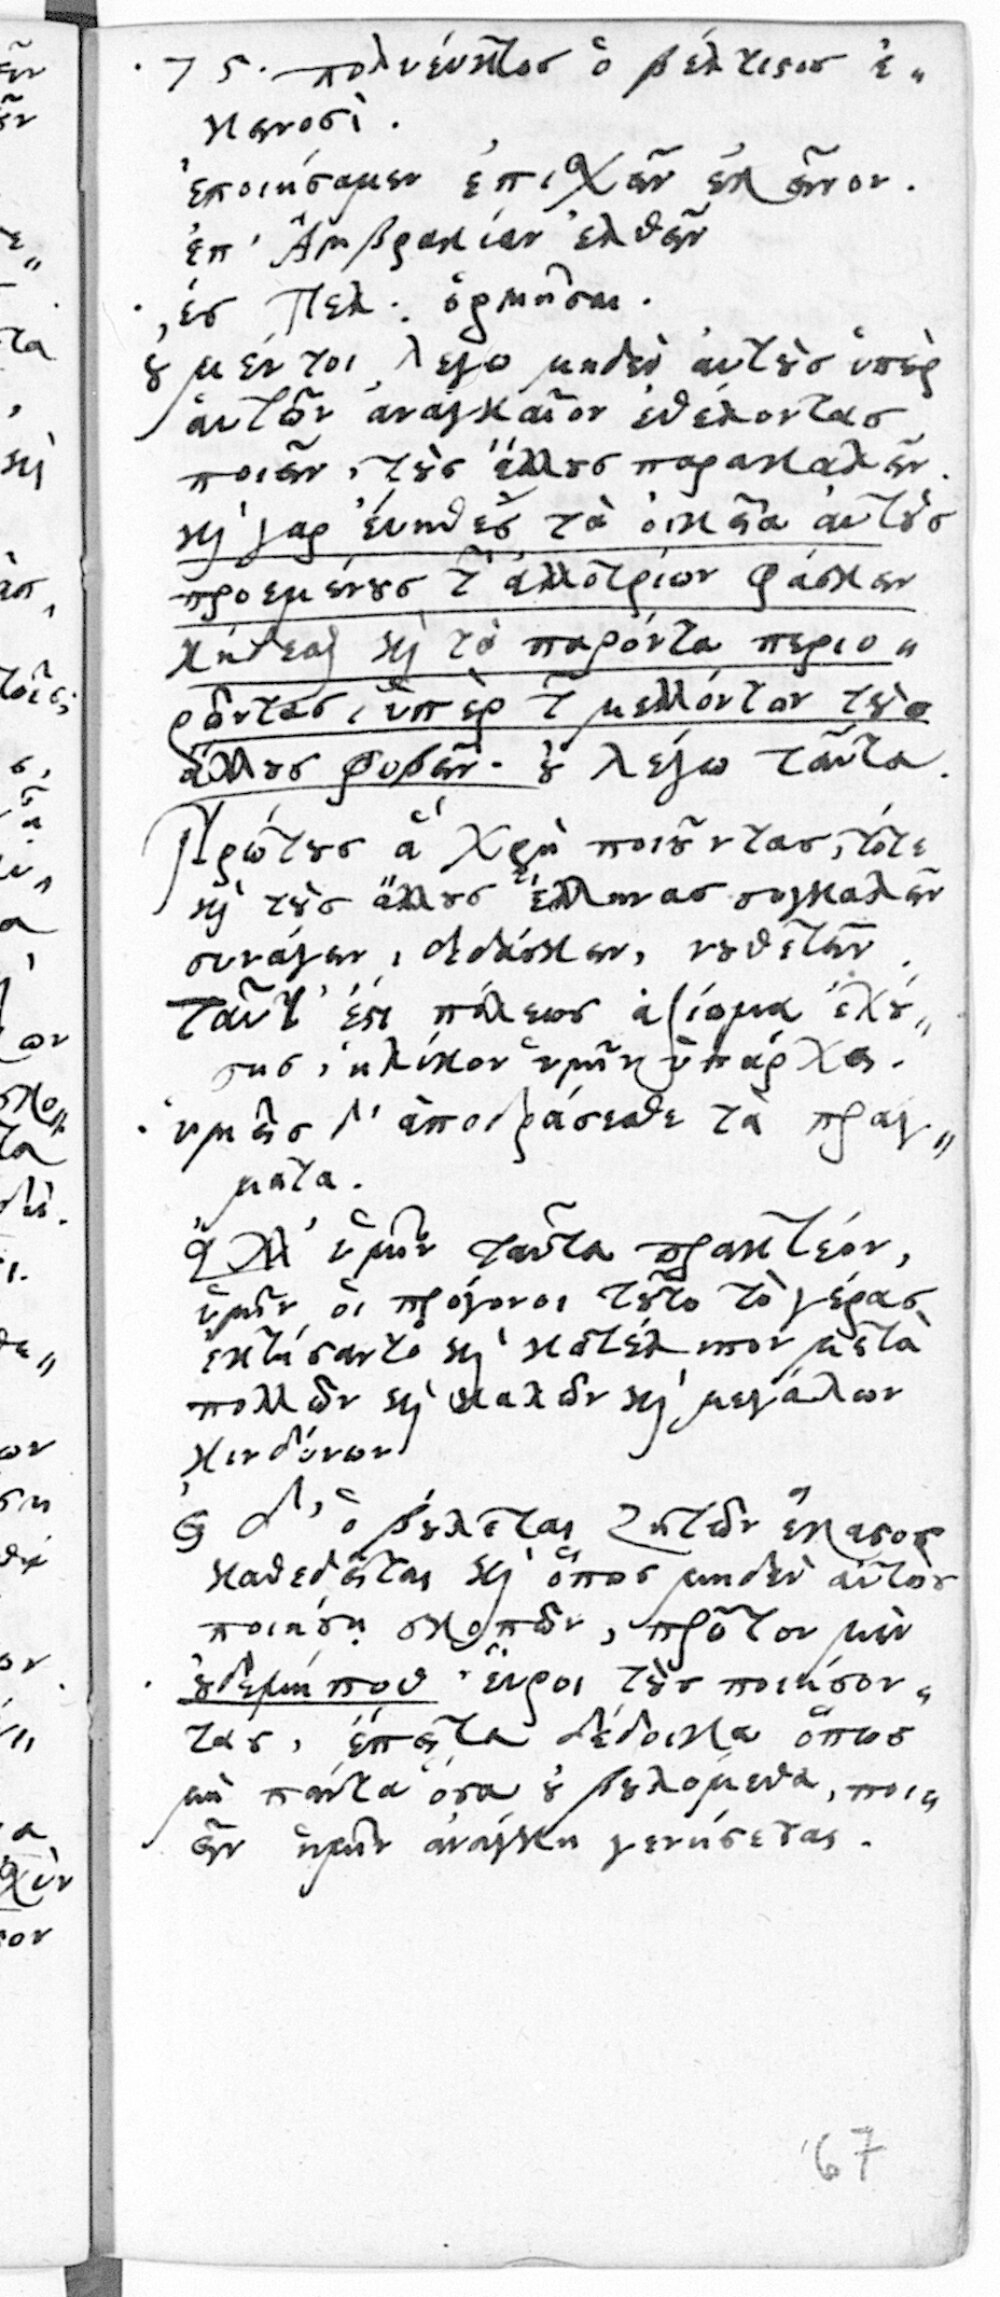 · 75 · πολυεύκτος ὁ βέλτισος ἐ„
κεινοσὶ .
ἐποιήσαμεν ἐπισχεῖν ἐκεῖνον .
ἐπ' Ἀμβρακίαν ἐλθεῖν
· ἐς Πελ . ὁρμῆσαι .
ȣ μέντοι λεγω μηδὲν ἀυτȣ̀ς ὑπὲρ
ἁυτῶν ἀναγκαῖον ἐθέλοντας
ποιεῖν , τȣ̀ς ἄλλȣς παρακαλεῖν .
καὶ γαρ ἔυηθες τὰ ὀικεῖα ἀυτȣ̀ς
προεμένȣς τ ἀλλοτρίων φάσκειν
κήδεσθαι καὶ τὰ παρόντα περιο„
ρῶντας , ὑπὲρ τ μελλόντων τȣ̀ς
ἄλλȣς φοβεῖν · ȣ λέγω ταῦτα .
Πρώτȣς ἃ χρὴ ποιȣ͂ντας , τότε
καὶ τȣ̀ς ἄλλȣς Ἕλληνας συγκαλεῖν
συνάγειν , διδάσκειν , νȣθετεῖν .
ταῦτ' ἐςι πόλεως ἀξίωμα ἐχȣ́„
σης , ἡλίκον ὑμῖν ὑπάρχει .
· ὑμεῖς δ' ἀποδράσεσθε τὰ πραγ„
ματα .
ἀλλ' ὑμῖν ταῦτα πρακτέον ,
ὑμῖν ὁι πρόγονοι τȣ͂το τὸ γέρας
ἐκτήσαντο καὶ κατέλιπον μετὰ
πολλῶν καὶ καλῶν καὶ μεγάλων
κινδύνων
ἐι δ', ὃ βέλεται ζητῶν ἕκαςος
καθεδεῖται καὶ ὅπως μηδὲν ἀυτὸς
ποιήσῃ σκοπῶν , πρῶτον μὲν
· ȣδεμήποθ' ἕυροι τȣ̀ς ποιήσον„
τας , ἔπειτα δέδοικα ὅπως
μὴ πάντα ὅσα ȣ βȣλομεθα , ποι„
εῖν ἡμῖν ἀνάγκη γενήσεται .
67